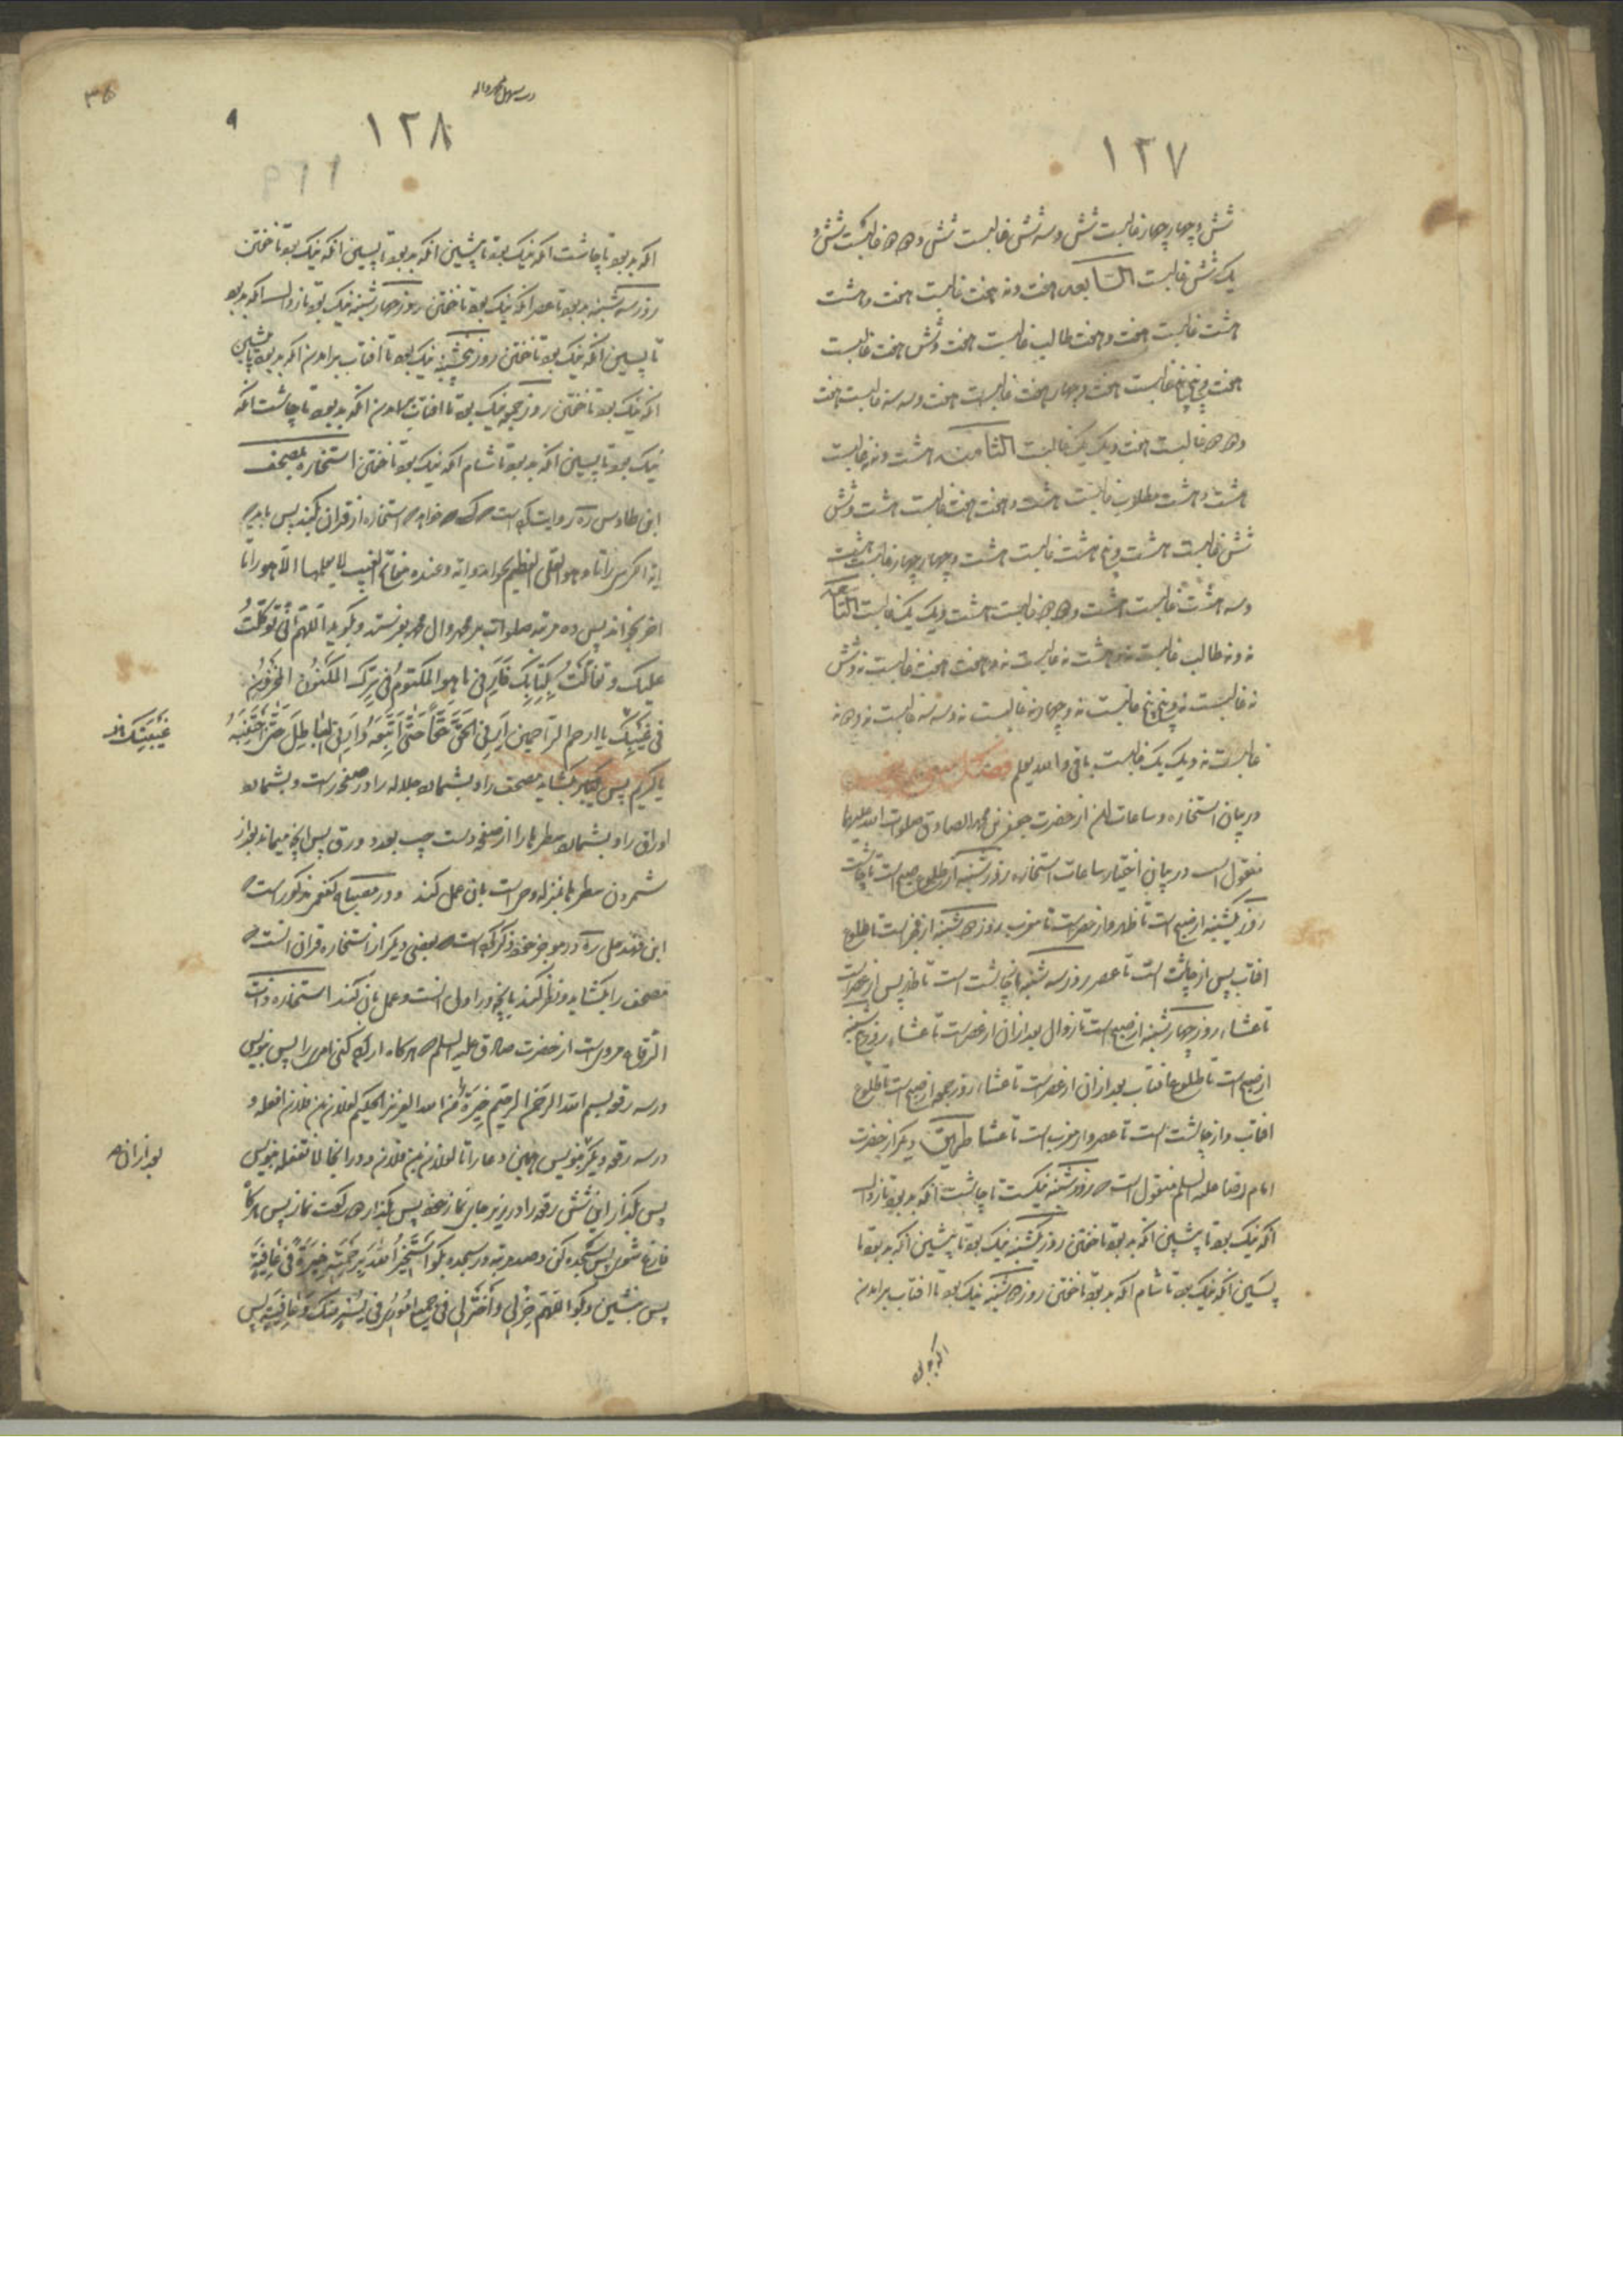 ١٢٧
شش و چهار چهار غالبست شش و سه شش غالبست شش و دو دو غالبست شش و
یک شش غالبست السابعه هفت و نه هفت غالبست هفت و هشت
هشت غالبست هفت و هفت طالب غالبست هفت و شش هفت غالبست
هفت و پنج پنج غالبست هفت و چهار هفت غالبست هفت و سه سه غالبست هفت
و دو دو غالبست هفت و یک یک غالبست الثامنه هشت و نه نه غالبست
هشت و هشت مطلوب غالبست هشت و هفت هفت غالبست هشت و شش
شش غالبست هشت و پنج هشت غالبست هشت و چهار چهار غالبست هشت
و سه هشت غالبست هشت و دو دو غالبست هشت و یک یک غالبست التاسعه
نه و نه طالب غالبست نه و هشت نه غالبست نه و هفت هفت غالبست نه و شش
نه غالبست نه و پنج پنج غالبست نه و چهار نه غالبست نه و سه سه غالبست نه و دو نه
غالبست نه و یک یک غالبست باقی والله یعلم فصل
در بیان استخاره و ساعات ان از حضرت جعفر بن محمد الصادق صلوات الله علیهما
منقول است در بیان اختیار ساعات استخاره روز شنبه از طلوع صبح است تا چاشت
روز یکشنبه از صبح است تا ظهر و از عصر است تا مغرب روز دوشنبه از فجر است تا طلوع
افتاب پس از چاشت است تا عصر روز سه شنبه از چاشت است تا ظهر پس از عصر است
تا عشاء روز چهارشنبه از صبح است تا زوال بعد از ان از عصر است تا عشاء روز پنج شنبه
از صبح است تا طلوع افتاب بعد از ان از عصر است تا عشاء روز جمعه از صبح است تا طلوع
افتاب و از چاشت است تا عصر و از مغرب است تا عشا طریق دیگر از حضرت
امام رضا علیه السلم منقول است که روز شنبه نیکست تا چاشت انکه بد بود تا زوال
انکه نیک بود تا پیشین انکه بد بود تا خفتن روز یکشنبه نیک بود تا پیشین انکه بد بود تا
پسین انکه نیک بود تا شام انکه بد بود تا خفتن روز دوشنبه نیک بود تا افتاب برامدن
١٢٨
٩
انکه بد بود تا چاشت انکه نیک بود تا پیشین انکه بد بود تا پسین انکه نیک بود تا خفتن
روز سه شنبه بد بود تا عصر انکه نیک بود تا خفتن روز چهارشنبه نیک بود تا زوال انکه بد بود
تا پسین انکه نیک بود تا خفتن روز پنجشنبه نیک بود تا افتاب برامدن انکه بد بود تا پیشین
انکه نیک بود تا خفتن روز جمعه نیک بود تا افتاب برامدن انکه بد بود تا چاشت انکه
نیک بود تا پسین انکه بد بود تا شام انکه نیک بود تا خفتن استخاره بمصحف
ابن طاوس ره روایت کرده است که هر که خواهد که استخاره از قران کند پس باید که
ایة الکرسی را تا و هو العلی العظیم بخواند و ایه و عنده مفاتح الغیب لا یعلمها الا هو را تا
اخر بخواند پس ده مرتبه صلوات بر محمد و ال محمد بفرستد و بگوید اللهم انی توکلت
علیک و تفالت بکتابک فارنی ما هو المکتوم فی سرک المکنون المخزون
فی غیبک یا ارحم الراحمین ارنی الحق حقا حتی اتبعه و ارنی الباطل حتی اجتنبه
غیبتک
یا کریم پس بگشاید مصحف را و بشمارد جلاله را در صفحه راست و بشمارد
اوراق را و بشمارد سطرها را از صفحه دست چپ بعدد ورق پس انچه میماند بعد از
شمردن سطرها بمنزله وحی است بان عمل کند و در مصباح کفعمی مذکور است که
ابن فهد حلی ره در موجز خود ذکر کرده است که بعضی دیگر از استخاره قران انست که
مصحف را بگشاید و نظر کند بانچه در اول انست و عمل بان کند استخاره ذات
الرقاع مرویست از حضرت صادق علیه السلم که هرگاه اراده کنی امری را پس بنویس
در سه رقعه بسم الله الرحمن الرحیم خیرة من الله العزیز الحکیم لفلان بن فلان افعله و
در سه رقعه دیگر بنویس همین دعا را تا لفلان بن فلان و در انجا لا تفعله بنویس
بعد از ان
پس بگذار این شش رقعه را در زیر جای نماز خود پس بگذار دو رکعت نماز پس هرگاه
فارغ شوی پس سجده کن و صد مرتبه در سجده بگو استخیر الله برحمته خیرة فی عافیة
پس بنشین و بگو اللهم خر لی و اختر لی فی جمیع اموری فی یسر منک و عافیة پس